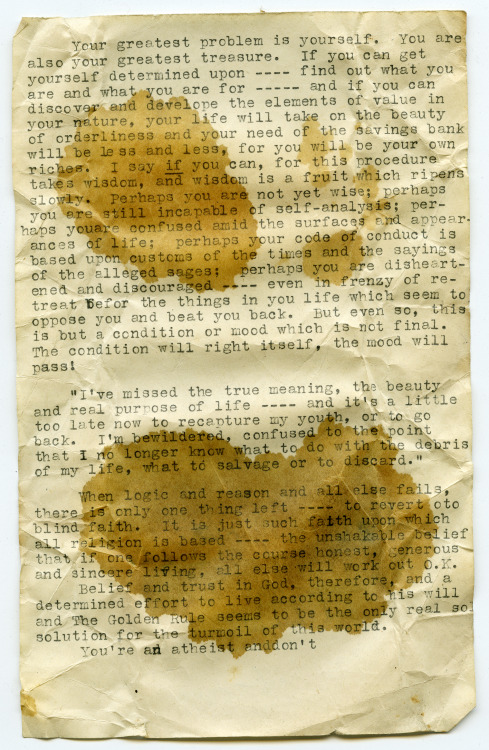 Your greatest problem is yourself. You are
also your greatest treasure. If you can get
yourself determined upon ---- find out what you
are and what you are for ----- and if you can
discover and develope the elements of value in
your nature, your life will take on the beauty
of orderliness and your need of the savings bank
will be less and less, for you will be your own
riches. I say if you can, for this procedure
takes wisdom, and wisdom is a fruit which ripens
slowly. Perhaps you are not yet wise; perhaps
you are still incapable of self-analysis; per-
haps youare confused amid the surfaces and appear-
ances of life; perhaps your code of conduct is
based upon customs of the times and the sayings
of the alleged sages; perhaps you are disheart-
ened and discouraged ---- even in frenzy of re-
treat befor the things in you life which seem to
oppose you and beat you back. But even so, this
is but a condition or mood which is not final.
The condition will right itself, the mood will
pass!
"I've missed the true meaning, the beauty
and real purpose of life ---- and it's a little
too late now to recapture my youth, or to go
back. I'm bewildered, confused to the point
that I no longer know what to do with the debris
of my life, what to salvage or to discard."
When logic and reason and all else fails,
there is only one thing left ---- to revert oto
blind faith. It is just such faith upon which
all religion is based ---- the unshakable belief
that if one follows the course honest, generous
and sincere living, all else will work out O.K.
Belief and trust in God, therefore, and a
determined effort to live according to his will
and The Golden Rule seems to be the only real sol
solution for the turmoil of this world.
You're an atheist anddon't